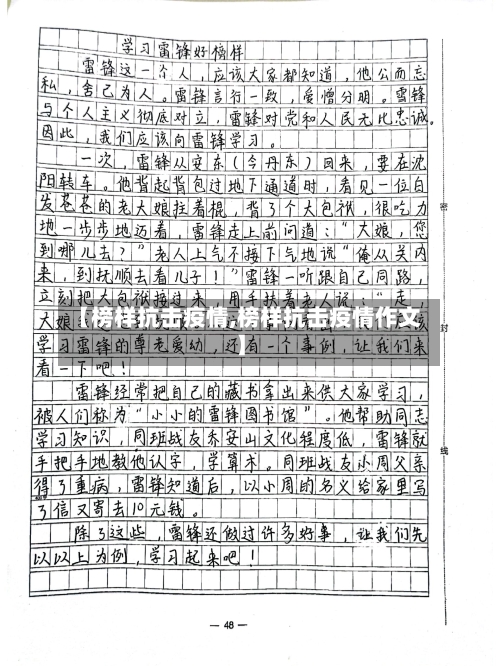 学习雷锋好榜样
雷锋这一个人，应该大家都知道，他公而忘
私，舍己为人。雷锋言行一致，爱憎分明。雪锋
与个人主义彻底对立，雷锋对党和人民无比忠诚。
因此，我们应该向雷锋学习。
一次，雷锋从安东（今丹东）回来，要在沈
阳转车。他背起背包过地下通道时，看见一位白
发苍苍的老大娘拄着棍，背了个大包袱，很吃力
地一步步地迈着，雷锋走上前问道：“大娘，您
到哪儿去？”老人上气不接下气地说“俺从关内
来，到抚顺去看儿子！”雷锋一听跟自己同路，
立刻把大包袱接过来，用手扶着老人说：“走，
大娘
【榜样抗击疫情,榜样抗击疫情作文
】
学习雷锋的尊老爱幼，还有一个事例，让我们来
看一下吧！
雷锋经常把自己的藏书拿出来供大家学习，
被人们称为“小小的雷锋图书馆”。他帮助同志
学习知识，同班战友乔安山文化程度低，雷锋就
手把手地教他认字，学算术。同班战友小周父亲
得了重病，雷锋知道后，以小周的名义给家里写
了信又寄去10元钱。
除了这些，雷锋还做过许多好事，让我们先
以以上为例，学习起来吧！
密
封
线
— 48 —